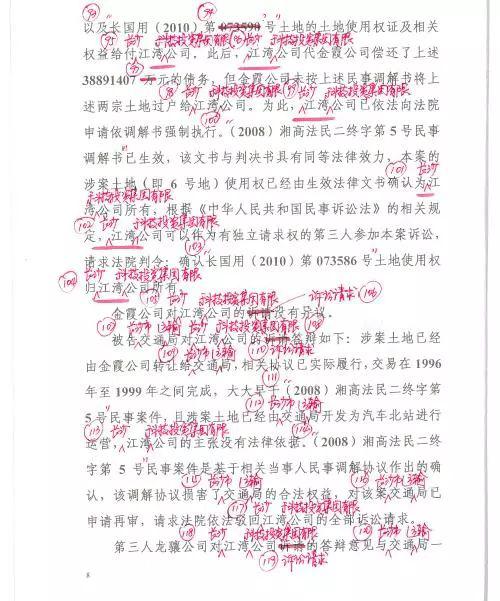 93 94
以及长国用（2010）第073590号土地的土地使用权证及相关
95 长沙 科技投资集团有限 96 长沙 科技投资集团有限
权益给付江湾公司。此后，江湾公司代金霞公司偿还了上述
38891407万元的债务，但金霞公司未按上述民事调解书将上
98 长沙 科技投资集团有限 99 长沙 科技投资集团有限
述两宗土地过户给江湾公司。为此，江湾公司已依法向法院
100
申请依调解书强制执行。（2008）湘高法民二终字第5号民事
调解书已生效，该文书与判决书具有同等法律效力，本案的
101 长沙
涉案土地（即6号地）使用权已经由生效法律文书确认为江
科技投资集团有限
湾公司所有，根据《中华人民共和国民事诉讼法》的相关规
102 长沙 科技投资集团有限
定，江湾公司可以作为有独立请求权的第三人参加本案诉讼，
103
请求法院判令：确认长国用（2010）第073586号土地使用权
104 长沙 科技投资集团有限
归江湾公司所有。
105 长沙 科技投资集团有限 诉讼请求 106
金霞公司对江湾公司的诉请没有异议。
107 长沙市 运输 长沙 科技投资集团有限 108
被告交通局对江湾公司的诉请答辩如下：涉案土地已经
109 长沙市 运输 110 诉讼请求
由金霞公司转让给交通局，相关协议已实际履行，交易在1996
111
年至1999年之间完成，大大早于（2008）湘高法民二终字第
112 长沙市 运输
5号民事案件，且涉案土地已经由交通局开发为汽车北站进行
113 长沙 科技投资集团有限
运营，江湾公司的主张没有法律依据。（2008）湘高法民二终
字第5号民事案件是基于相关当事人民事调解协议作出的确
115 长沙市 运输 116 长沙市 运输
认，该调解协议损害了交通局的合法权益，对该案交通局已
117 长沙 科技投资集团有限
申请再审，请求法院依法驳回江湾公司的全部诉讼请求。
118 长沙 科技投资集团有限 120 长沙市 运输
第三人龙骧公司对江湾公司诉请的答辩意见与交通局一
119 诉讼请求
8